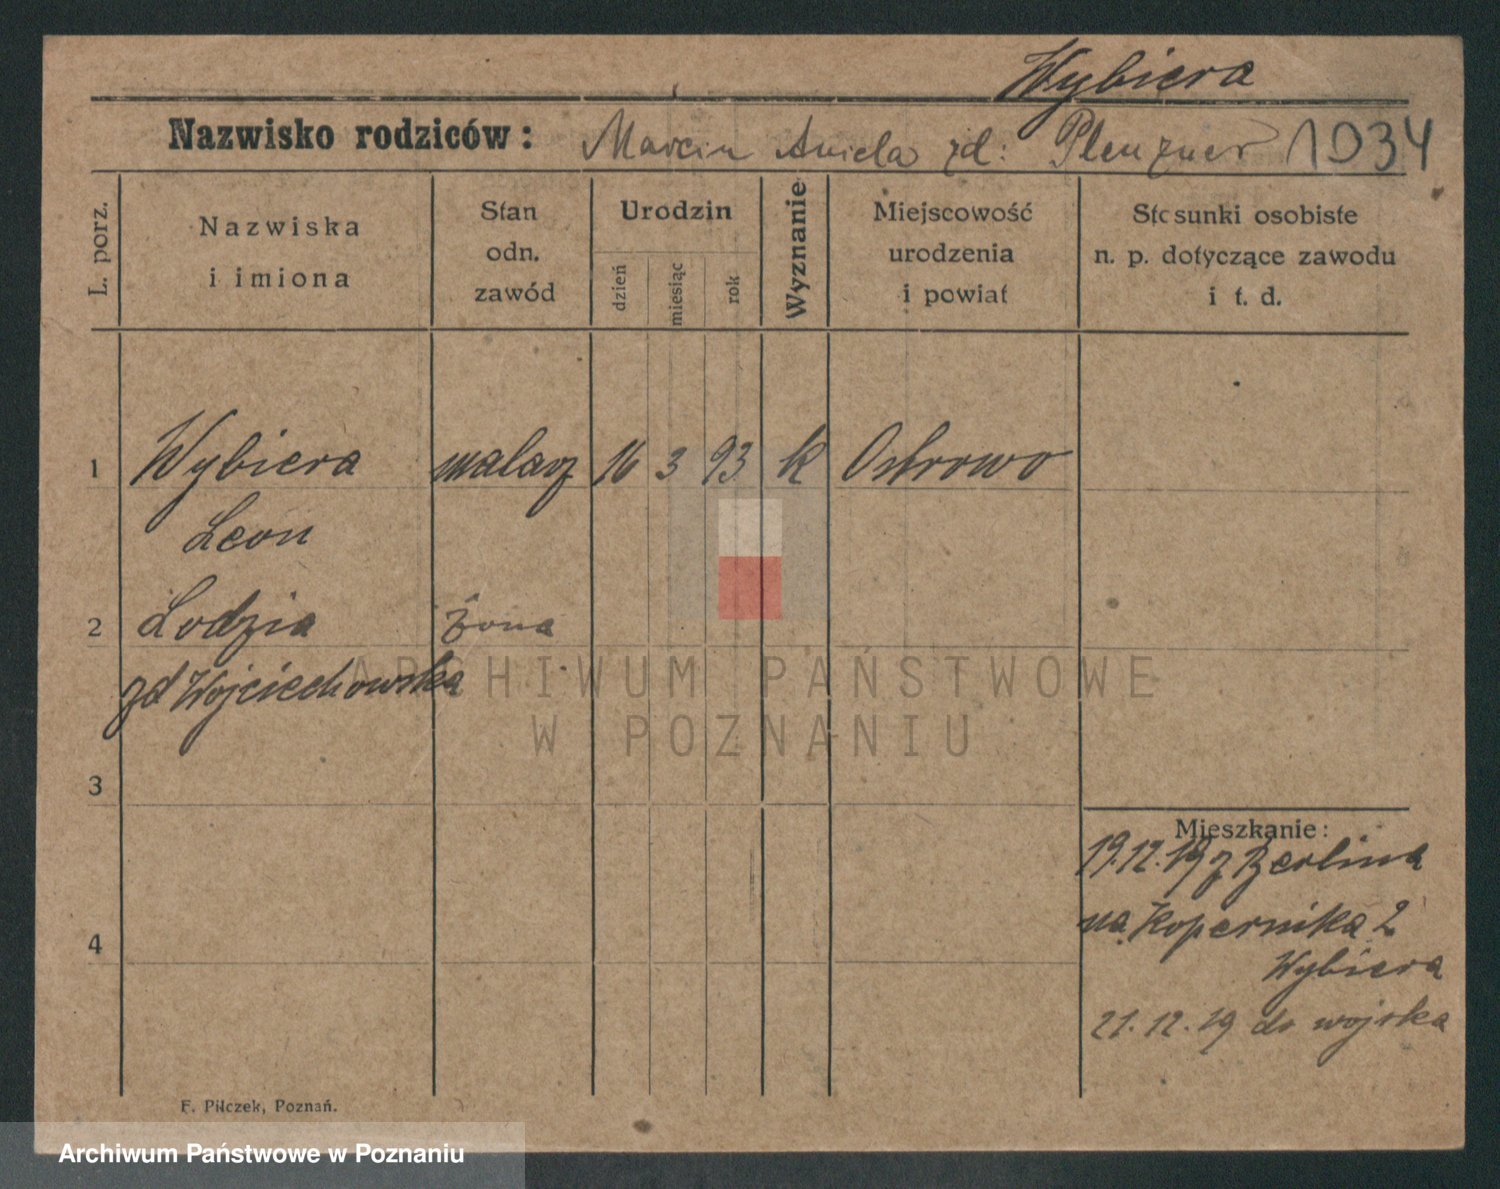 Wybiera
Nazwisko rodziców: Marcin Aniela zd: Plenzner 1934
L. porz.
Nazwiska
i imiona
Stan
odn.
zawód
Urodzin
dzień
miesiąc
rok
Wyznanie
Miejscowość
urodzenia
i powiat
Stosunki osobiste
n. p. dotyczące zawodu
i t. d.
1 Wybiera malarz 16 3 93 k Ostrowo
Leon
2 Lodzia żona
zd Wojciechowska
3
Mieszkanie:
19.12.19 z Berlina
na Kopernika 2
4
Wybiera
21.12.19 do wojska
F. Pilczek, Poznań.
ARCHIWUM PAŃSTWOWE
W POZNANIU
Archiwum Państwowe w Poznaniu